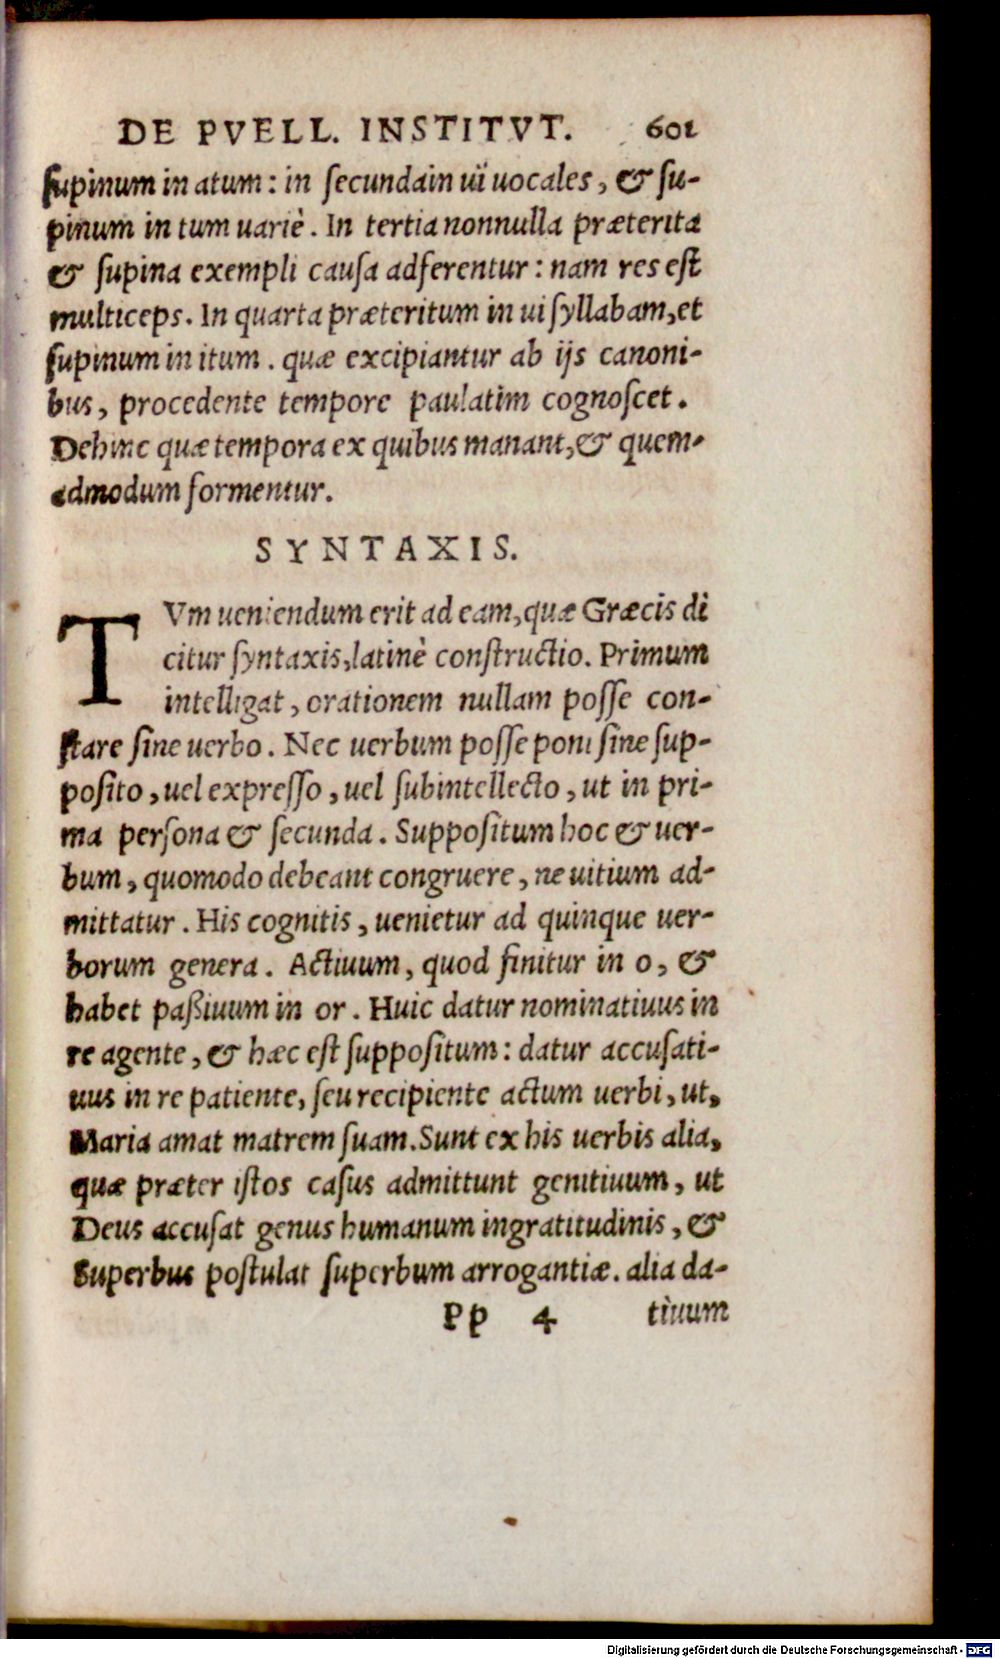 DE PVELL. INSTITVT. 601
ſupinum in atum: in ſecunda in uï uocales, & ſu-
pinum in tum uariè. In tertia nonnulla præterita
& ſupina exempli cauſa adferentur: nam res eſt
multiceps. In quarta præteritum in ui ſyllabam, et
ſupinum in itum. quæ excipiantur ab ijs canoni-
bus, procedente tempore paulatim cognoſcet.
Dehinc quæ tempora ex quibus manant, & quem-
admodum formentur.
SYNTAXIS.
TVm ueniendum erit ad eam, quæ Græcis di
citur ſyntaxis, latinè conſtructio. Primum
intelligat, orationem nullam poſſe con-
ſtare ſine uerbo. Nec uerbum poſſe poni ſine ſup-
poſito, uel expreſſo, uel ſubintellecto, ut in pri-
ma perſona & ſecunda. Suppoſitum hoc & uer-
bum, quomodo debeant congruere, ne uitium ad-
mittatur. His cognitis, uenietur ad quinque uer-
borum genera. Actiuum, quod finitur in o, &
habet paßiuum in or. Huic datur nominatiuus in
re agente, & hæc eſt ſuppoſitum: datur accuſati-
uus in re patiente, ſeu recipiente actum uerbi, ut,
Maria amat matrem ſuam. Sunt ex his uerbis alia,
quæ præter iſtos caſus admittunt genitiuum, ut
Deus accuſat genus humanum ingratitudinis, &
Superbus poſtulat ſuperbum arrogantiæ. alia da-
Pp 4 tiuum
Digitalisierung gefördert durch die Deutsche Forschungsgemeinschaft - DFG